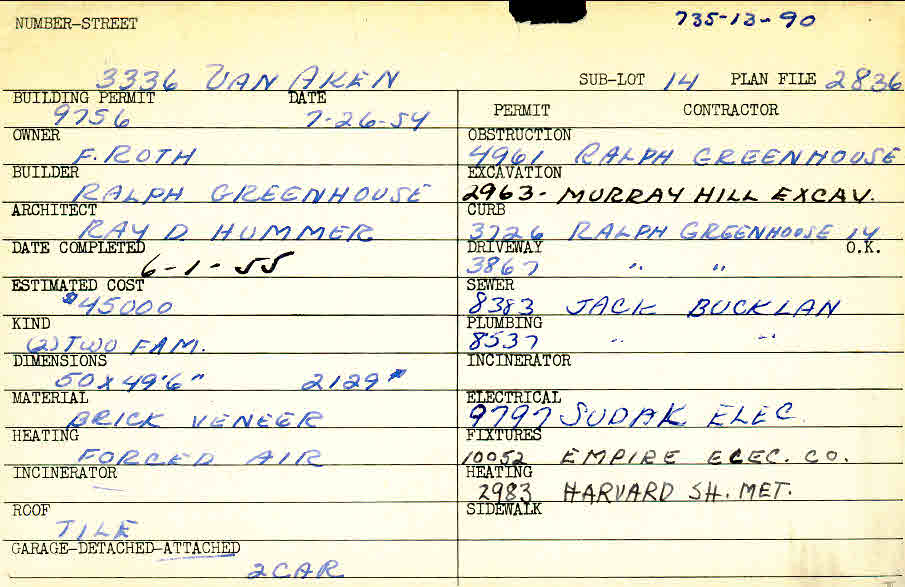 NUMBER-STREET
735-13-90
3336 VAN AKEN
SUB-LOT 14 PLAN FILE 2836
BUILDING PERMIT DATE
9756 7-26-54
OWNER
F. ROTH
BUILDER
RALPH GREENHOUSE
ARCHITECT
RAY D. HUMMER
DATE COMPLETED
6-1-55
ESTIMATED COST
$45000
KIND
(2) TWO FAM.
DIMENSIONS
50 x 49'6" 2129#
MATERIAL
BRICK VENEER
HEATING
FORCED AIR
INCINERATOR
—
ROOF
TILE
GARAGE-DETACHED-ATTACHED
2 CAR
PERMIT CONTRACTOR
OBSTRUCTION
4961 RALPH GREENHOUSE
EXCAVATION
2963- MURRAY HILL EXCAV.
CURB
3726 RALPH GREENHOOSE 14
DRIVEWAY O.K.
3867 " "
SEWER
8383 JACK BUCKLAN
PLUMBING
8537 " "
INCINERATOR
ELECTRICAL
9797 SUDAK ELEC.
FIXTURES
10052 EMPIRE ELEC. CO.
HEATING
2983 HARVARD SH. MET.
SIDEWALK